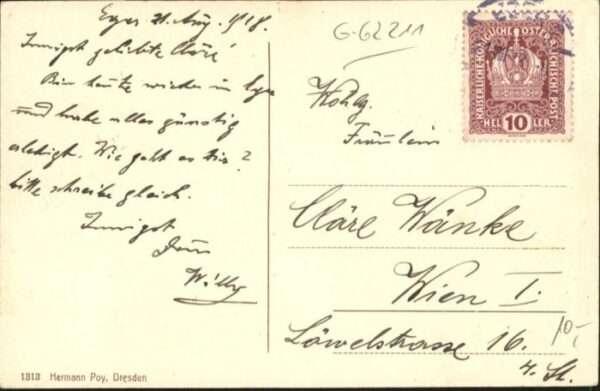 Eger 21. Aug. 1918.
Innigst geliebte Cläre!
Bin heute wieder in Eger
und habe alles günstig
erledigt. Wie geht es Dir?
bitte schreibe gleich.
Innigst
Dein
Willy
1313 Hermann Poy, Dresden
G-62211
KAISERLICHE KÖNIGLICHE ÖSTERREICHISCHE POST
HELLER 10
Fräulein
Cläre Wänke
Wien I.
Löwelstrasse 16.
4. St.
10,-